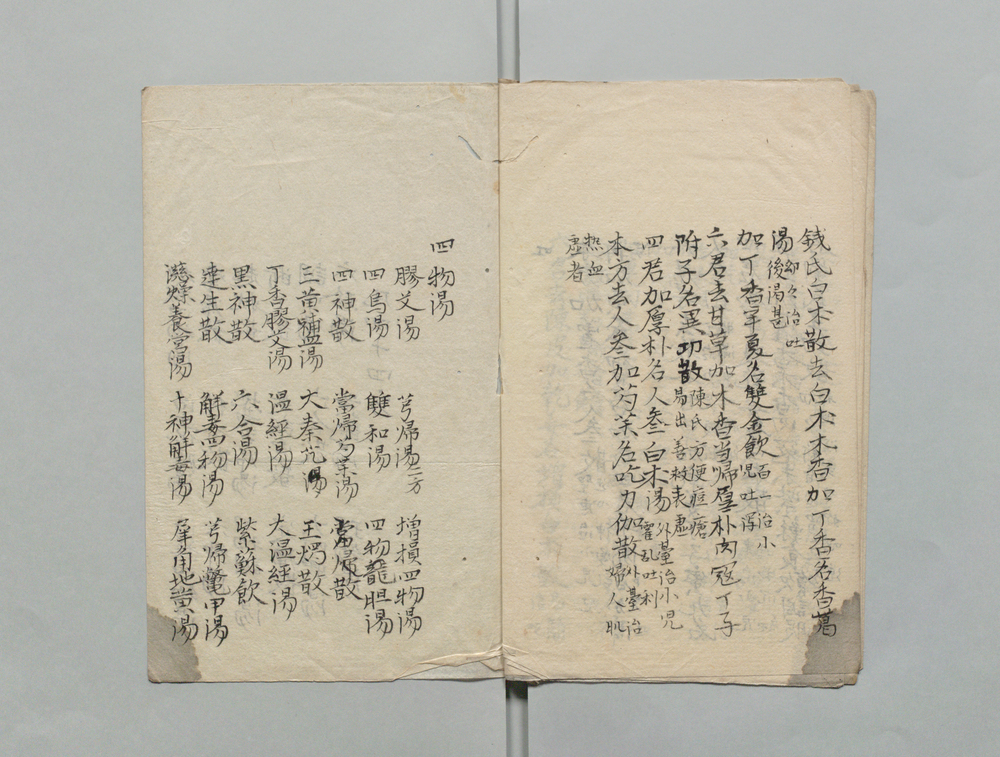 銭氏白朮散去白朮木香加丁香名香葛
湯幼々治吐後渇甚
加丁香半夏名雙金飲百一治小児吐瀉
六君去甘草加木香当帰厚朴肉冦丁子
附子名異功散陳氏方便痘瘡易出善救表虚
四君加厚朴名人参白朮湯外臺治小児霍乱吐利
本方去人参加芍薬名吃力伽散外臺治婦人肌
熱血虚者
四物湯
膠艾湯 芎帰湯二方 増損四物湯
四烏湯 雙和湯 四物龍胆湯
四神散 當帰芍薬湯 當帰散
三黄補湯 大秦艽湯 玉燭散
丁香膠艾湯 温經湯 大温經湯
黒神散 六合湯 紫蘇飲
達生散 解毒四物湯 芎帰鼈甲湯
滋燥養営湯 十神解毒湯 犀角地黄湯